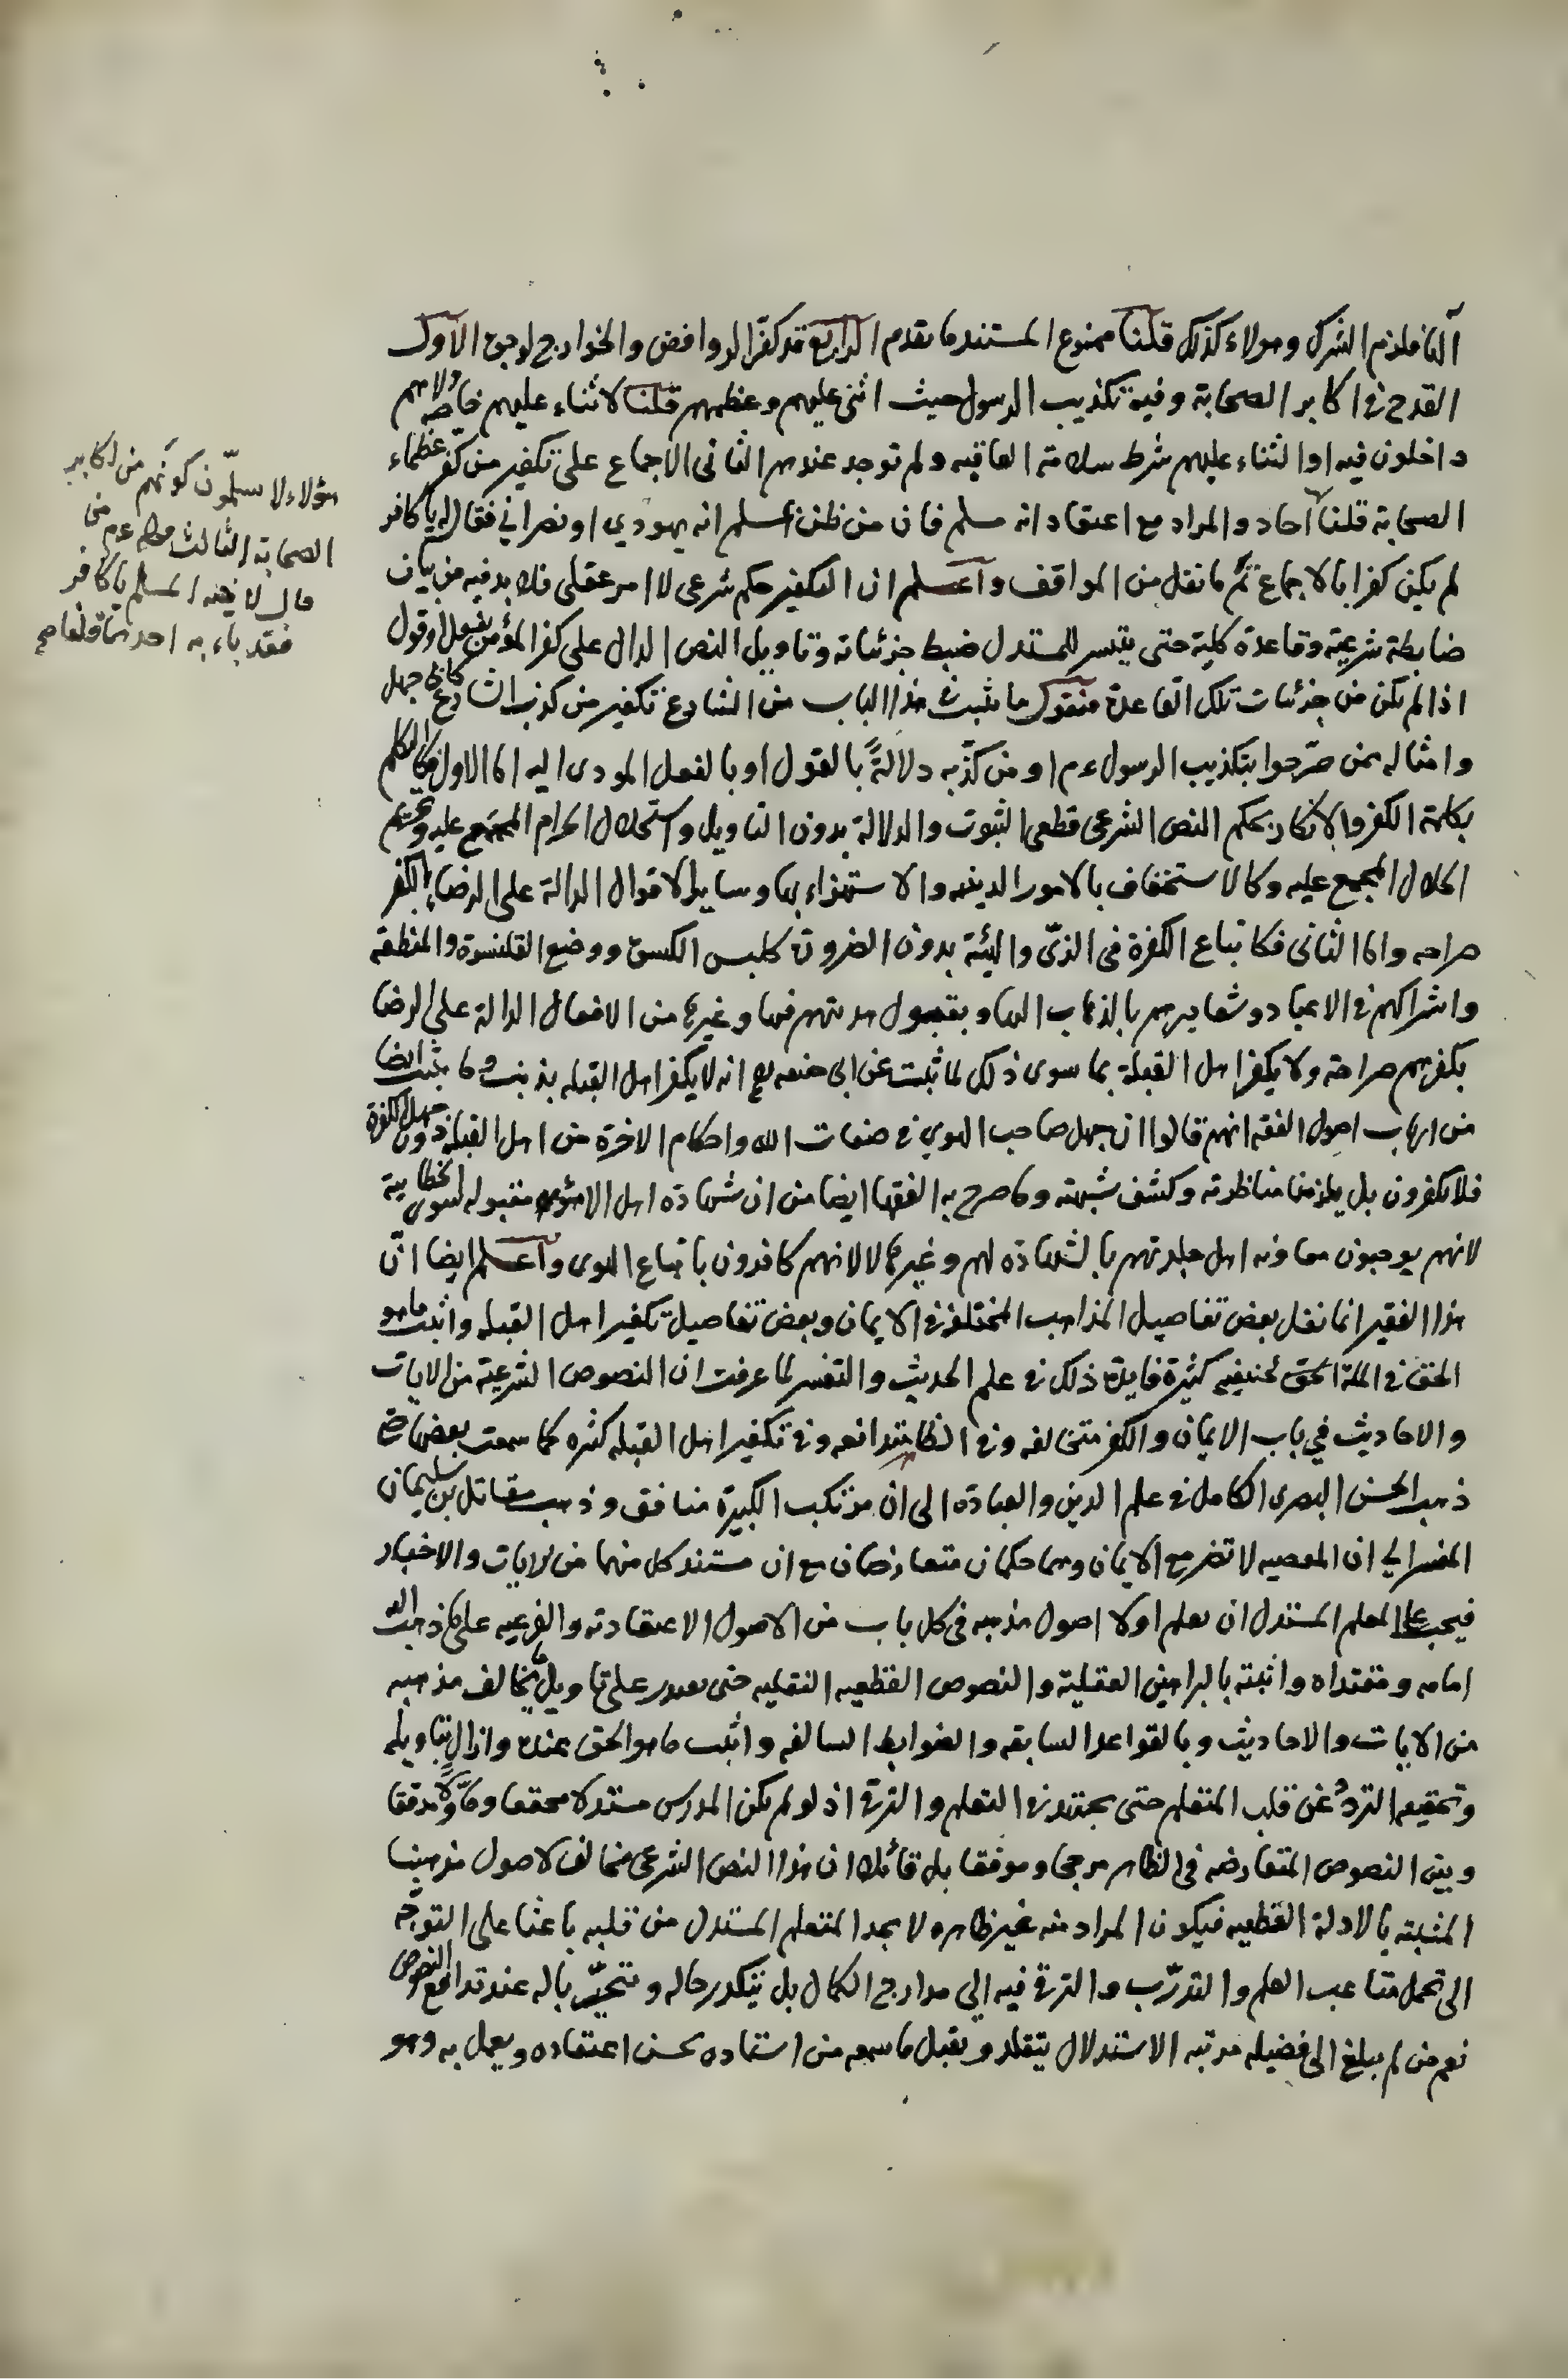 النا ملزم الشرك وهولاء كذلك قلنا ممنوع المستند ما تقدم الرابع قد كفر الروافض والخوارج لوجوه الاول
القدح في اكابر الصحابة وفيه تكذيب الرسول حيث اثنى عليهم وعظمهم قلنا لا ثناء عليهم خاصه ولا هم
داخلون فيه او الثناء عليهم شرط سلامة العاقبه ولم توجد عندهم الثاني الاجماع على تكفير من كفر عظماء
الصحابة قلنا آحاد والمراد مع اعتقاد انه مسلم فان من ظن المسلم انه يهودي او نصراني فقال له يا كافر
لم يكن كفرا بالاجماع تم ما نقل من المواقف واعلم ان التكفير حكم شرعى لا امر عقلى فلا بد فيه من بيان
ضابطة شرعية وقاعدة كلية حتى يتيسر للمستدل ضبط جزئياته وتاويل النص الدال على كفر المؤمن بفعل او قول
اذا لم تكن من جزئيات تلك القاعدة منقول ما يثبت في هذا الباب من الشارع تكفير من كذب الشارع كابى جهل
وامثاله ممن صرّحوا بتكذيب الرسول ءم او من كذّبه دلالةً بالقول او بالفعل المودى اليه اما الاول فكالتكلم
بكلمة الكفر والانكار بحكم النص الشرعى قطعى الثبوت والدلالة بدون التاويل واستحلال الحرام المجمع عليه وتحريم
الحلال المجمع عليه وكالاستخفاف بالامور الدينيه والاستهزاء بها وساير الاقوال الدالة على الرضاء بالكفر
صراحه واما الثاني فكاتباع الكفرة فى الزىّ والهيئة بدون الضرورة كلبس الكستى ووضع القلنسوة والمنطقه
واشراكهم في الاعياد وشعايرهم بالذهاب اليها وبقبول هديتهم فيها وغيرها من الافعال الدالة على الرضا
بكفرهم صراحة ولا يكفر اهل القبلة بما سوى ذلك لما ثبت عن ابى حنيفه رح انه لا يكفر اهل القبله بذنب وما يثبت ايضا
من ارباب اصول الفقه انهم قالوا ان جهل صاحب الهوي في صفات الله واحكام الاخرة من اهل القبلة دون جهل الكفرة
فلا يكفرون بل يلزمنا مناظرته وكشف شبهته وما صرح به الفقها ايضا من ان شهادة اهل الاهواء مقبوله سوى الخطابية
لانهم يوجبون معاونه اهل جلدتهم بالشهاده لهم وغيرها لا لانهم كافرون باتباع الهوى واعلم ايضا انّ
هذا الفقير انما نقل بعض تفاصيل المذاهب المختلفه في الايمان وبعض تفاصيل تكفير اهل القبله واثبت ما هو
الحق في الملة لحنفيه كثيرة فايدة ذلك في علم الحديث والتفسير لما عرفت ان النصوص الشرعية من الايات
والاحاديث في باب الايمان والكفر متخالفه وفى الظاهر متدافعه وفى تكفير اهل القبله كثيره كما سمعت بعضها
ذهب الحسن البصرى الكامل في علم الدين والعبادة الى ان مرتكب الكبيرة منافق وذهب مقاتل بن سليمان
المفسر الي ان المعصيه لا تضر مع الايمان وهما حكمان متعارضان مع ان مستند كل منهما من الايات والاخبار
فيجب على المعلم المستدل ان يعلم اولا اصول مذهبه فى كل باب من الاصول الاعتقاديه والفرعيه على ما ذهب اليه
امامه ومقتداه واثبته بالبراهين العقلية والنصوص القطعيه النقليه حتى يقدر على تاويل ما يخالف مذهبه
من الايات والاحاديث وبالقواعد السابقه والضوابط السالفه واثبت ما هو الحق عنده وازال بتاويله
وتحقيقه التردد عن قلب المتعلم حتى يجتهد في التعلم والترقى اذ لو لم يكن المدرس مستدلا محققا ومأوّلا مدققا
وبين النصوص المتعارضه في الظاهر مرجحا وموفقا بل قائلا ان هذا النص الشرعى مخالف لاصول مذهبنا
المثبته بالادلة القطعيه فيكون المراد منه غير ظاهره لا يجد المتعلم المستدل من قلبه باعثا على التوجّه
الى تحمل متاعب العلم والتدرّب والترقى فيه الى مدارج الكمال بل يتكدر حاله ويتحيّر باله عند تدافع النصوص
نعم من لم يبلغ الى فضيله مرتبه الاستدلال يتقلد ويقبل ما سمعه من استاده بحسن اعتقاده ويعمل به وهو
هؤلاء لا يسلّمون كونهم من اكابر
الصحابة الثالث قوله ءم من
قال لاخيه المسلم يا كافر
فقد باء به احدهما قلنا مع